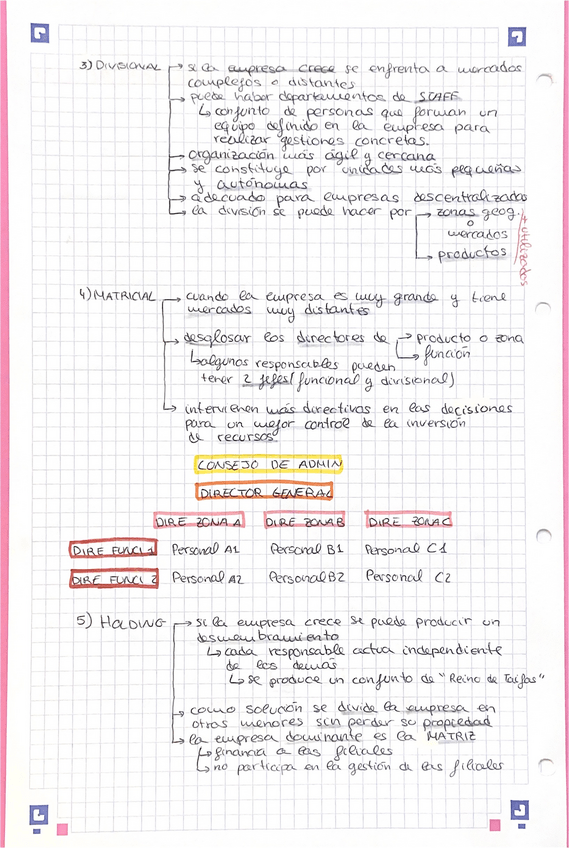 3) DIVISIONAL → si la empresa crece se enfrenta a mercados
complejos o distantes
→ puede haber departamentos de STAFF
↳ conjunto de personas que forman un
equipo definido en la empresa para
realizar gestiones concretas.
→ organización más ágil y cercana
→ se constituye por unidades más pequeñas
y autónomas
→ adecuado para empresas descentralizadas
→ la división se puede hacer por → zonas geog.
o
mercados
→ productos
+ utilizados
4) MATRICIAL → cuando la empresa es muy grande y tiene
mercados muy distantes
→ desglosar los directores de → producto o zona
→ función
↳ algunos responsables pueden
tener 2 jefes (funcional y divisional)
→ intervienen más directivos en las decisiones
para un mejor control de la inversión
de recursos
CONSEJO DE ADMIN
DIRECTOR GENERAL
DIRE ZONA A DIRE ZONA B DIRE ZONA C
DIRE FUNCI 1 Personal A1 Personal B1 Personal C1
DIRE FUNCI 2 Personal A2 Personal B2 Personal C2
5) HOLDING → si la empresa crece se puede producir un
desmembramiento
↳ cada responsable actua independiente
de los demás
↳ se produce un conjunto de "Reino de Taifas"
→ como solución se divide la empresa en
otras menores sin perder su propiedad
→ la empresa dominante es la MATRIZ
↳ financia a las filiales
↳ no participa en la gestión de las filiales